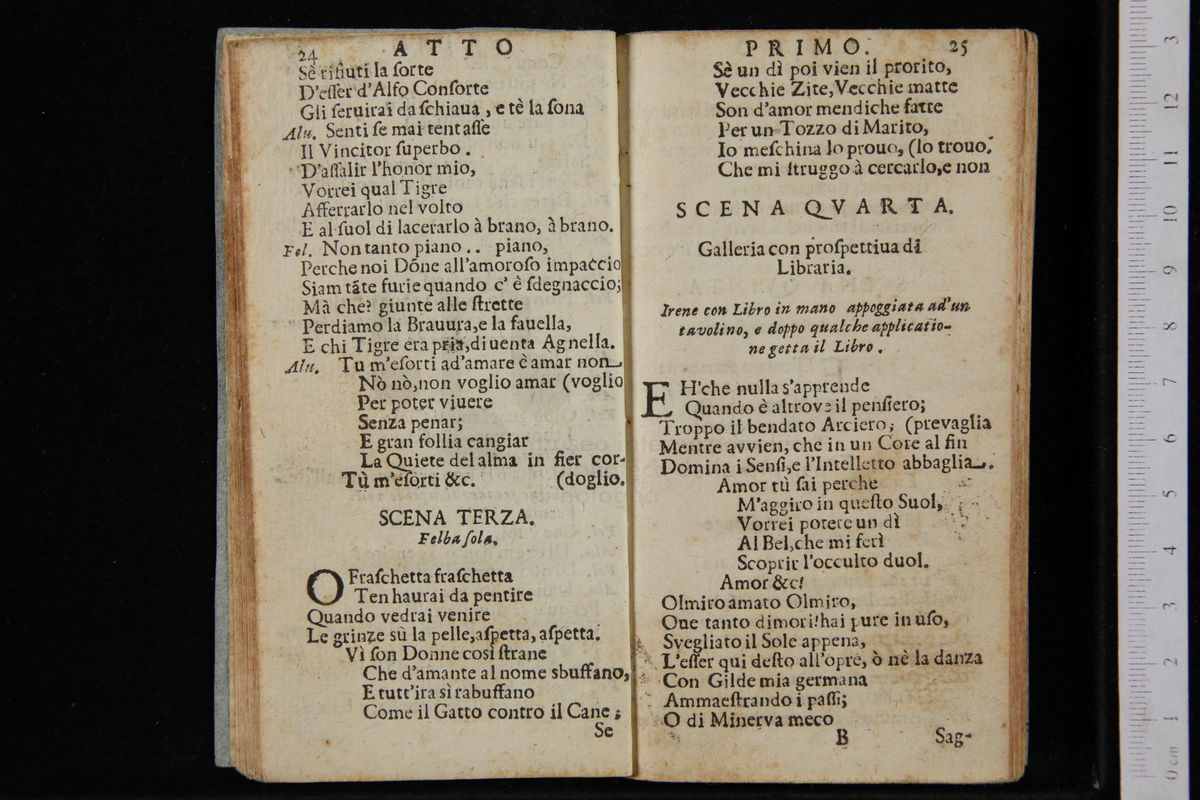 24 ATTO
Sè rifiuti la ſorte
D'eſſer d'Alfo Conſorte
Gli ſeruirai da ſchiaua , e tè la ſona
Alu. Senti ſe mai tentaſſe
Il Vincitor ſuperbo .
D'aſſalir l'honor mio,
Vorrei qual Tigre
Afferrarlo nel volto
E al ſuol di lacerarlo à brano, à brano.
Fel. Non tanto piano . . piano,
Perche noi Dõne all'amoroſo impaccio
Siam tãte furie quando c' è ſdegnaccio;
Mà che? giunte alle ſtrette
Perdiamo la Brauura, e la fauella,
E chi Tigre era pria, diuenta Agnella.
Alu. Tu m'eſorti ad'amare è amar non
Nò nò, non voglio amar (voglio
Per poter viuere
Senza penar;
E gran follia cangiar
La Quiete del alma in fier cor-
Tù m'eſorti &c. (doglio.
SCENA TERZA.
Felba ſola.
O Fraſchetta fraſchetta
Ten haurai da pentire
Quando vedrai venire
Le grinze sù la pelle, aſpetta, aſpetta.
Vì ſon Donne così ſtrane
Che d'amante al nome sbuffano,
E tutt'ira sì rabuffano
Come il Gatto contro il Cane ;
Se
PRIMO. 25
Sè un dì poi vien il prorito,
Vecchie Zite, Vecchie matte
Son d'amor mendiche fatte
Per un Tozzo di Marito,
Io meſchina lo prouo, (lo trouo.
Che mi ſtruggo à cercarlo, e non
SCENA QVARTA.
Galleria con proſpettiua di
Libraria.
Irene con Libro in mano appoggiata ad'un
tavolino, e doppo qualche applicatio-
ne getta il Libro .
EH'che nulla s'apprende
Quando è altrove il penſiero;
Troppo il bendato Arciero; (prevaglia
Mentre avvien, che in un Core al fin
Domina i Senſi, e l'Intelletto abbaglia .
Amor tù ſai perche
M'aggiro in queſto Suol,
Vorrei potere un dì
Al Bel, che mi ferì
Scoprir l'occulto duol.
Amor &c!
Olmiro amato Olmiro,
Oue tanto dimori! hai pure in uſo,
Svegliato il Sole appena,
L'eſſer qui deſto all'opre, ò nè la danza
Con Gilde mia germana
Ammaeſtrando i paſſi;
O di Minerva meco
B Sag-
3
12
11
10
9
8
7
6
5
4
3
2
1
0 cm